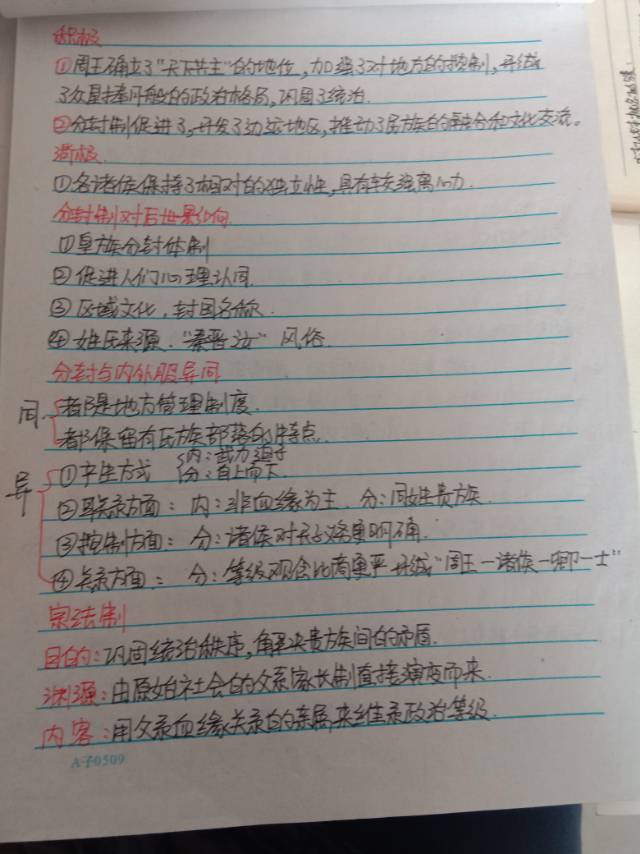 积极
①周王确立了“天下共主”的地位，加强了对地方的控制，形成
了众星捧月般的政治格局，巩固了统治.
②分封制促进了，开发了边远地区，推动了民族的融合和文化交流。
消极
①各诸侯保持了相对的独立性，具有较强离心力.
分封制对后世影响
①皇族分封体制
②促进人们心理认同.
③区域文化，封国名称.
④姓氏来源.“秦晋汝”风俗.
分封与内外服异同
同.都是地方管理制度.
都保留有氏族部落的特点.
异①产生方式 内：武力迫于
分：自上而下
②联系方面：内：非血缘为主.分：同姓贵族.
③控制方面：分：诸侯对天子义务更明确.
④关系方面：分：等级观念比商更严 形成“周王一诸侯一卿一士”
宗法制
目的：巩固统治秩序，解决贵族间的矛盾.
渊源：由原始社会的父系家长制直接演变而来.
内容：用父系血缘关系的亲属，来维系政治等级.
A子0509